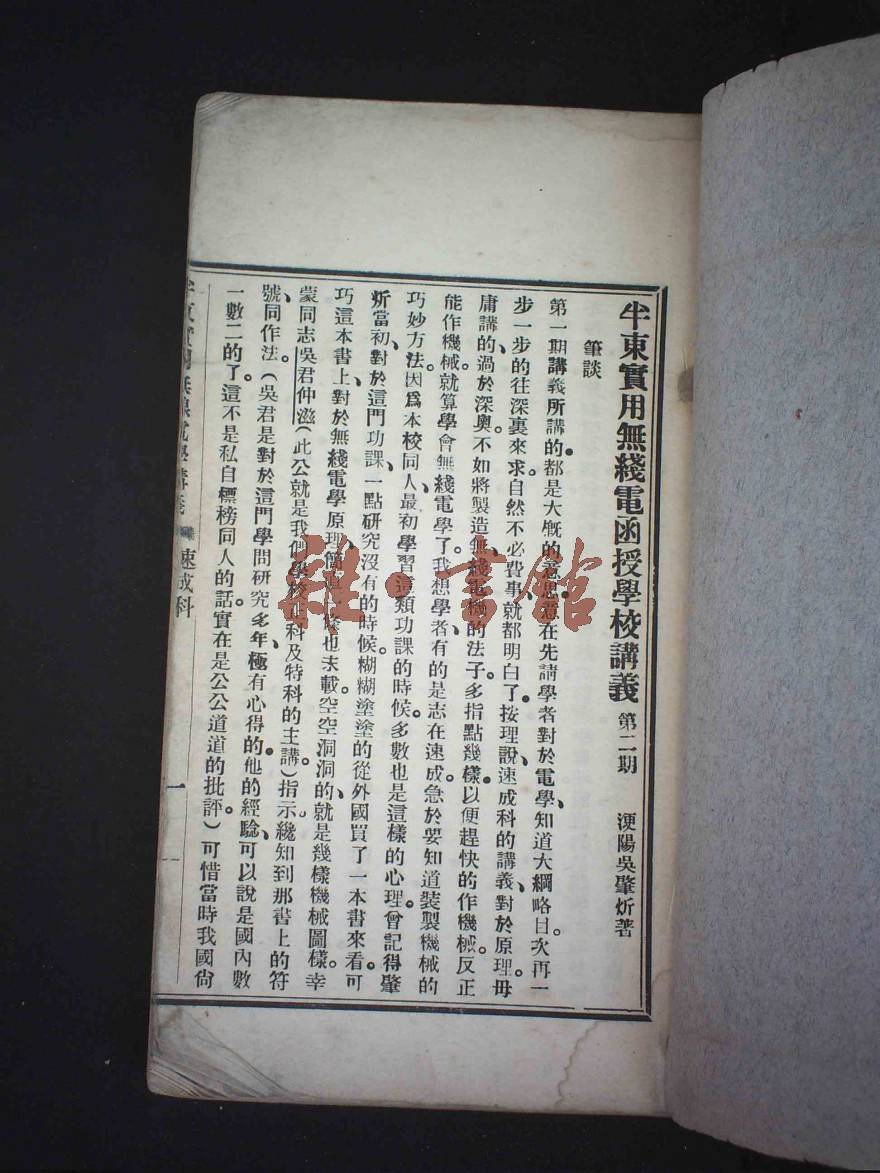 牟東實用無綫電函授學校講義 第二期 浭陽吳肇炘著
筆談
第一期講義所講的、都是大概的意思、意在先請學者對於電學、知道大綱略目、次再一
步一步的往深裏來求、自然不必費事、就都明白了。按理說、速成科的講義、對於原理。毋
庸講的、過於深奧、不如將製造無綫電機的法子。多指點幾樣。以便趕快的作機械。反正
能作機械、就算學會無綫電學了。我想學者、有的是志在速成、急於要知道裝製機械的
巧妙方法、因爲本校同人、最初學習這類功課的時候。多數也是這樣的心理。曾記得肇
炘當初、對於這門功課、一點研究沒有的時候、糊糊塗塗的、從外國買了一本書來看、可
巧這本書上、對於無綫電學原理、簡直一條也未載。空空洞洞的、就是幾樣機械圖樣。幸
蒙同志吳君仲滋(此公就是我們學校 科及特科的主講)指示。纔知到那書上的符
號、同作法。(吳君是對於這門學問、研究多年、極有心得的。他的經驗、可以說是國內數
一數二的了。這不是私自標榜同人的話、實在是公公道道的批評。)可惜當時我國尙
速成科
一
雜·書館